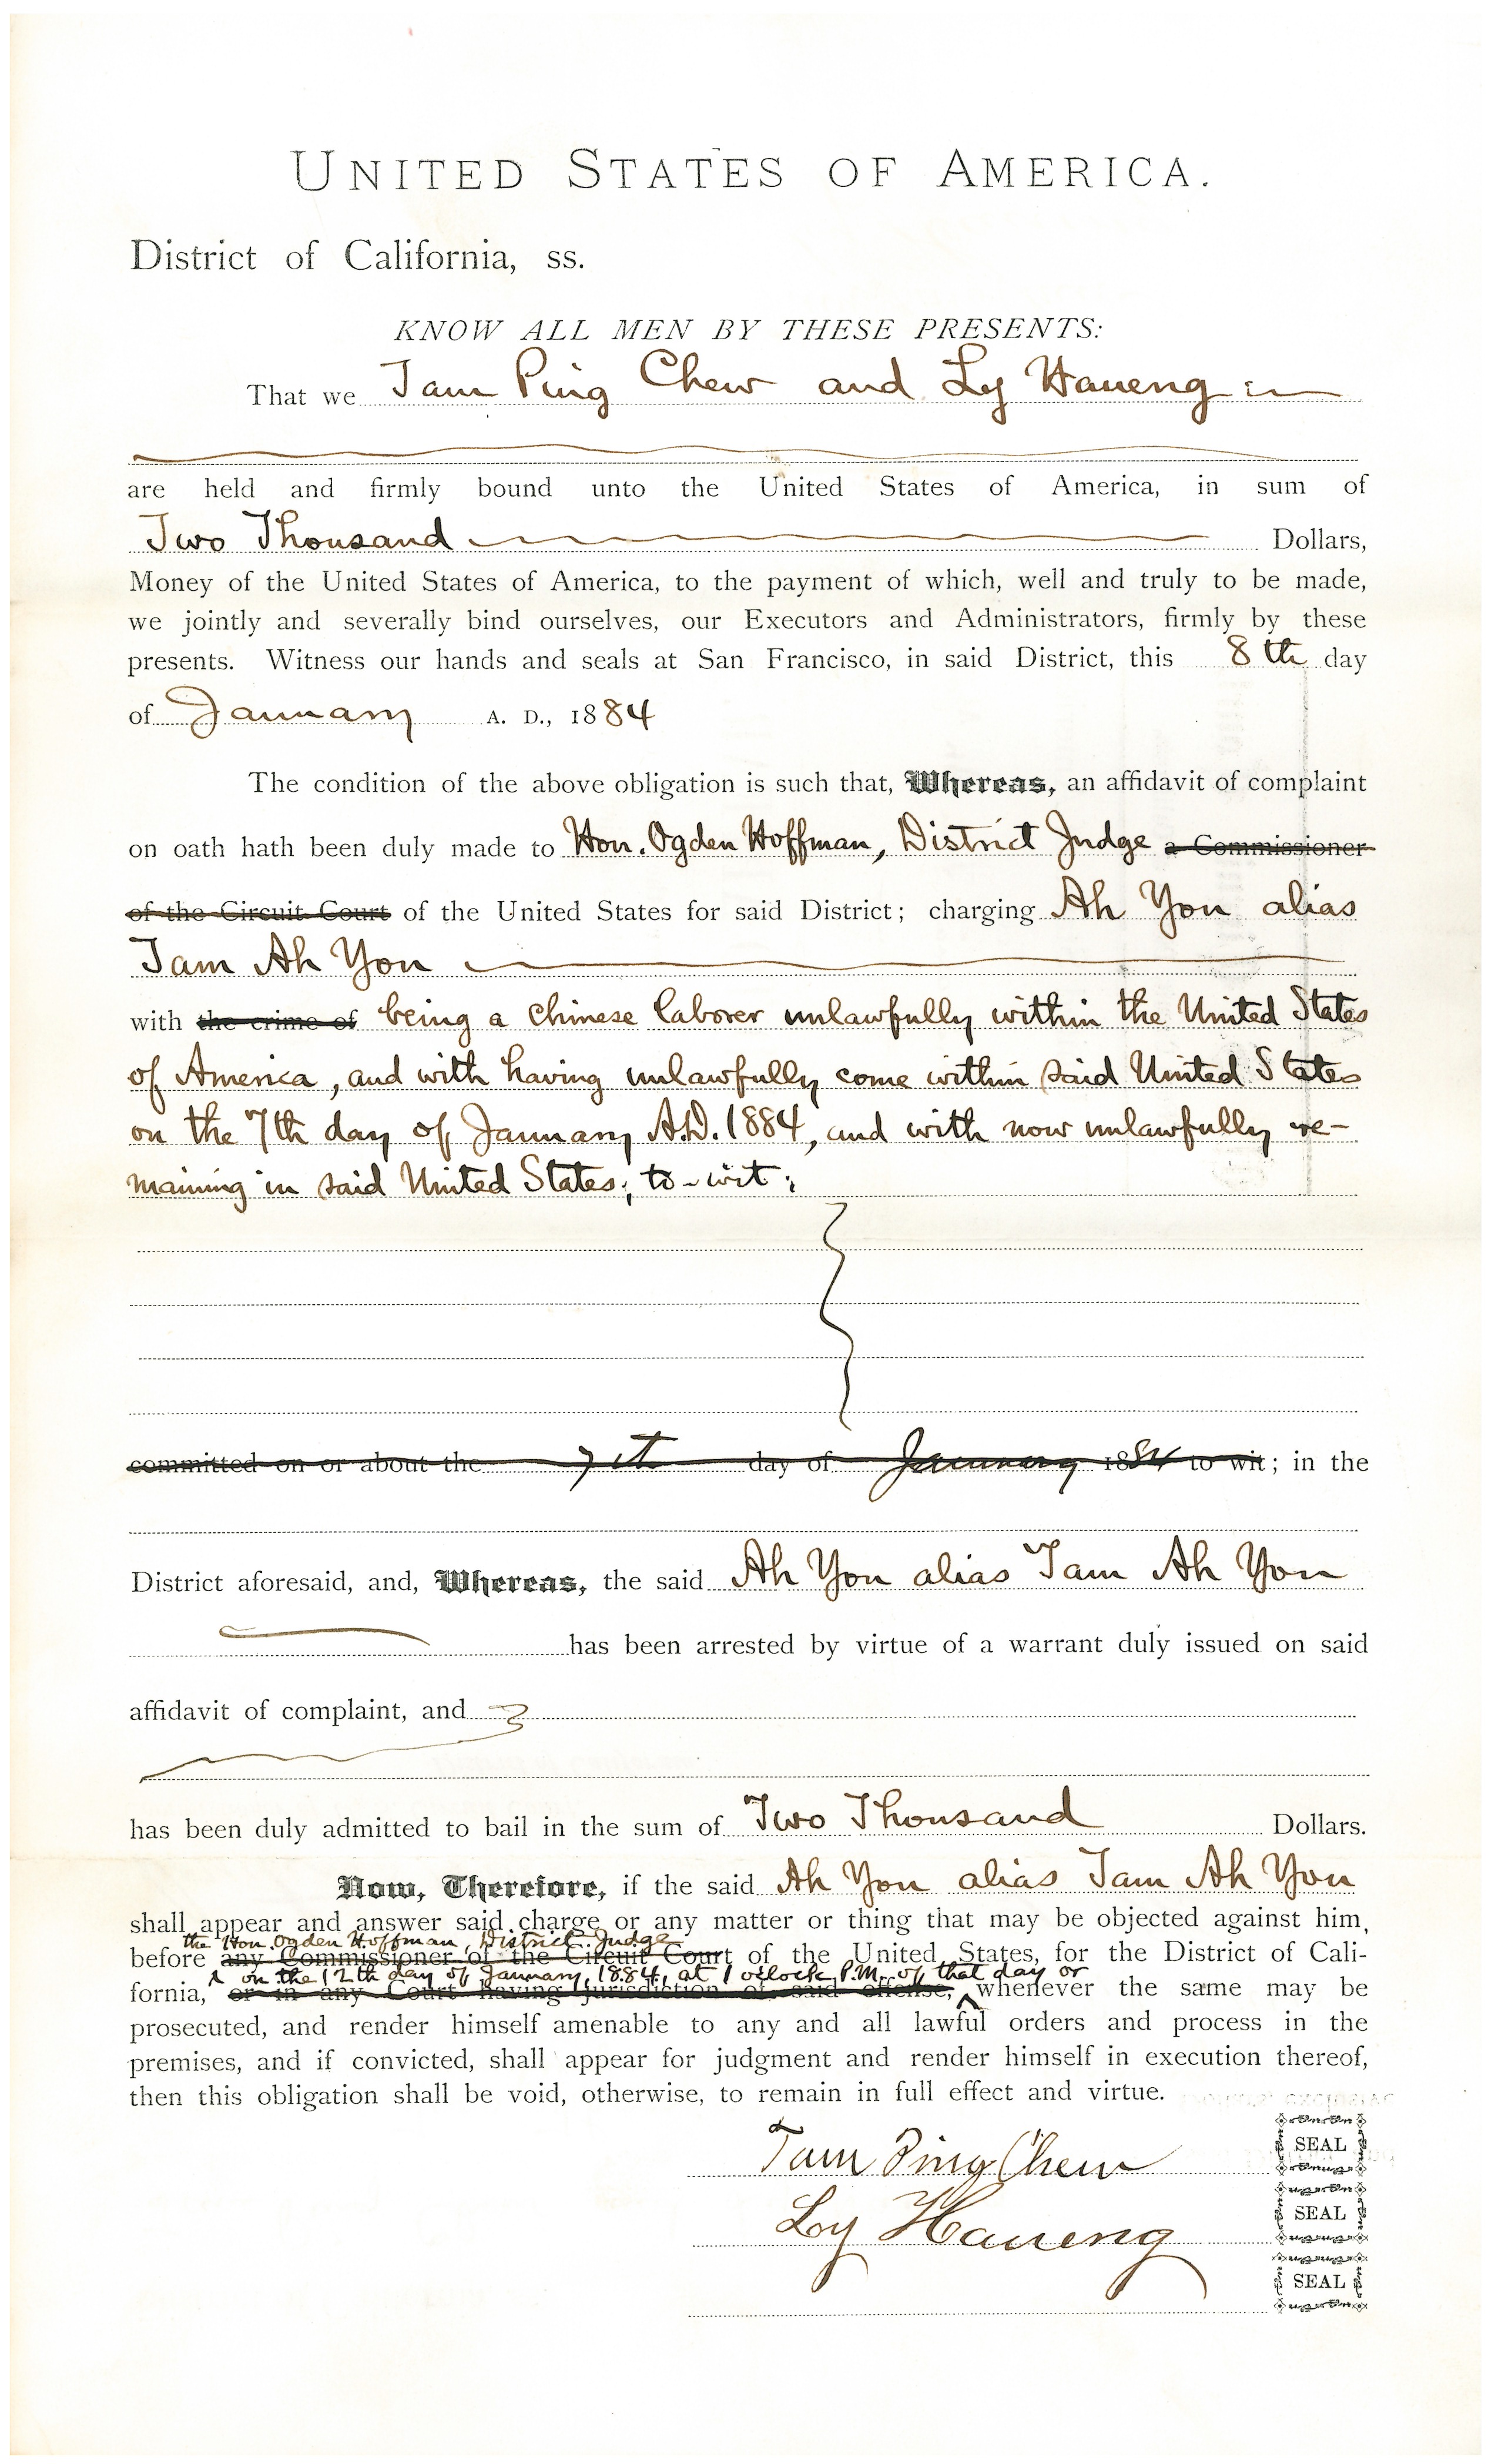 UNITED STATES OF AMERICA.
District of California, ss.
KNOW ALL MEN BY THESE PRESENTS:
That we Tam Ping Chew and Ly Haueng
are held and firmly bound unto the United States of America, in sum of
Two Thousand Dollars,
Money of the United States of America, to the payment of which, well and truly to be made,
we jointly and severally bind ourselves, our Executors and Administrators, firmly by these
presents. Witness our hands and seals at San Francisco, in said District, this 8th day
of January A. D., 1884
The condition of the above obligation is such that, Whereas, an affidavit of complaint
on oath hath been duly made to Hon. Ogden Hoffman, District Judge a Commissioner
of the Circuit Court of the United States for said District; charging Ah You alias
Tam Ah You
with the crime of being a Chinese laborer unlawfully within the United States
of America, and with having unlawfully come within said United States
on the 7th day of January A.D. 1884, and with now unlawfully re-
maining in said United States; to-wit;
committed on or about the 7th day of January 1884 to wit; in the
District aforesaid, and, Whereas, the said Ah You alias Tam Ah You
has been arrested by virtue of a warrant duly issued on said
affidavit of complaint, and
has been duly admitted to bail in the sum of Two Thousand Dollars.
Now, Therefore, if the said Ah You alias Tam Ah You
shall appear and answer said charge or any matter or thing that may be objected against him,
the Hon. Ogden Hoffman, District Judge
before any Commissioner of the Circuit Court of the United States, for the District of Cali-
on the 12th day of January, 1884, at 1 o'clock P.M. of that day or
fornia, or in any Court having jurisdiction of said offense, whenever the same may be
prosecuted, and render himself amenable to any and all lawful orders and process in the
premises, and if convicted, shall appear for judgment and render himself in execution thereof,
then this obligation shall be void, otherwise, to remain in full effect and virtue.
Tam Ping Chew SEAL
Ly Haueng SEAL
SEAL